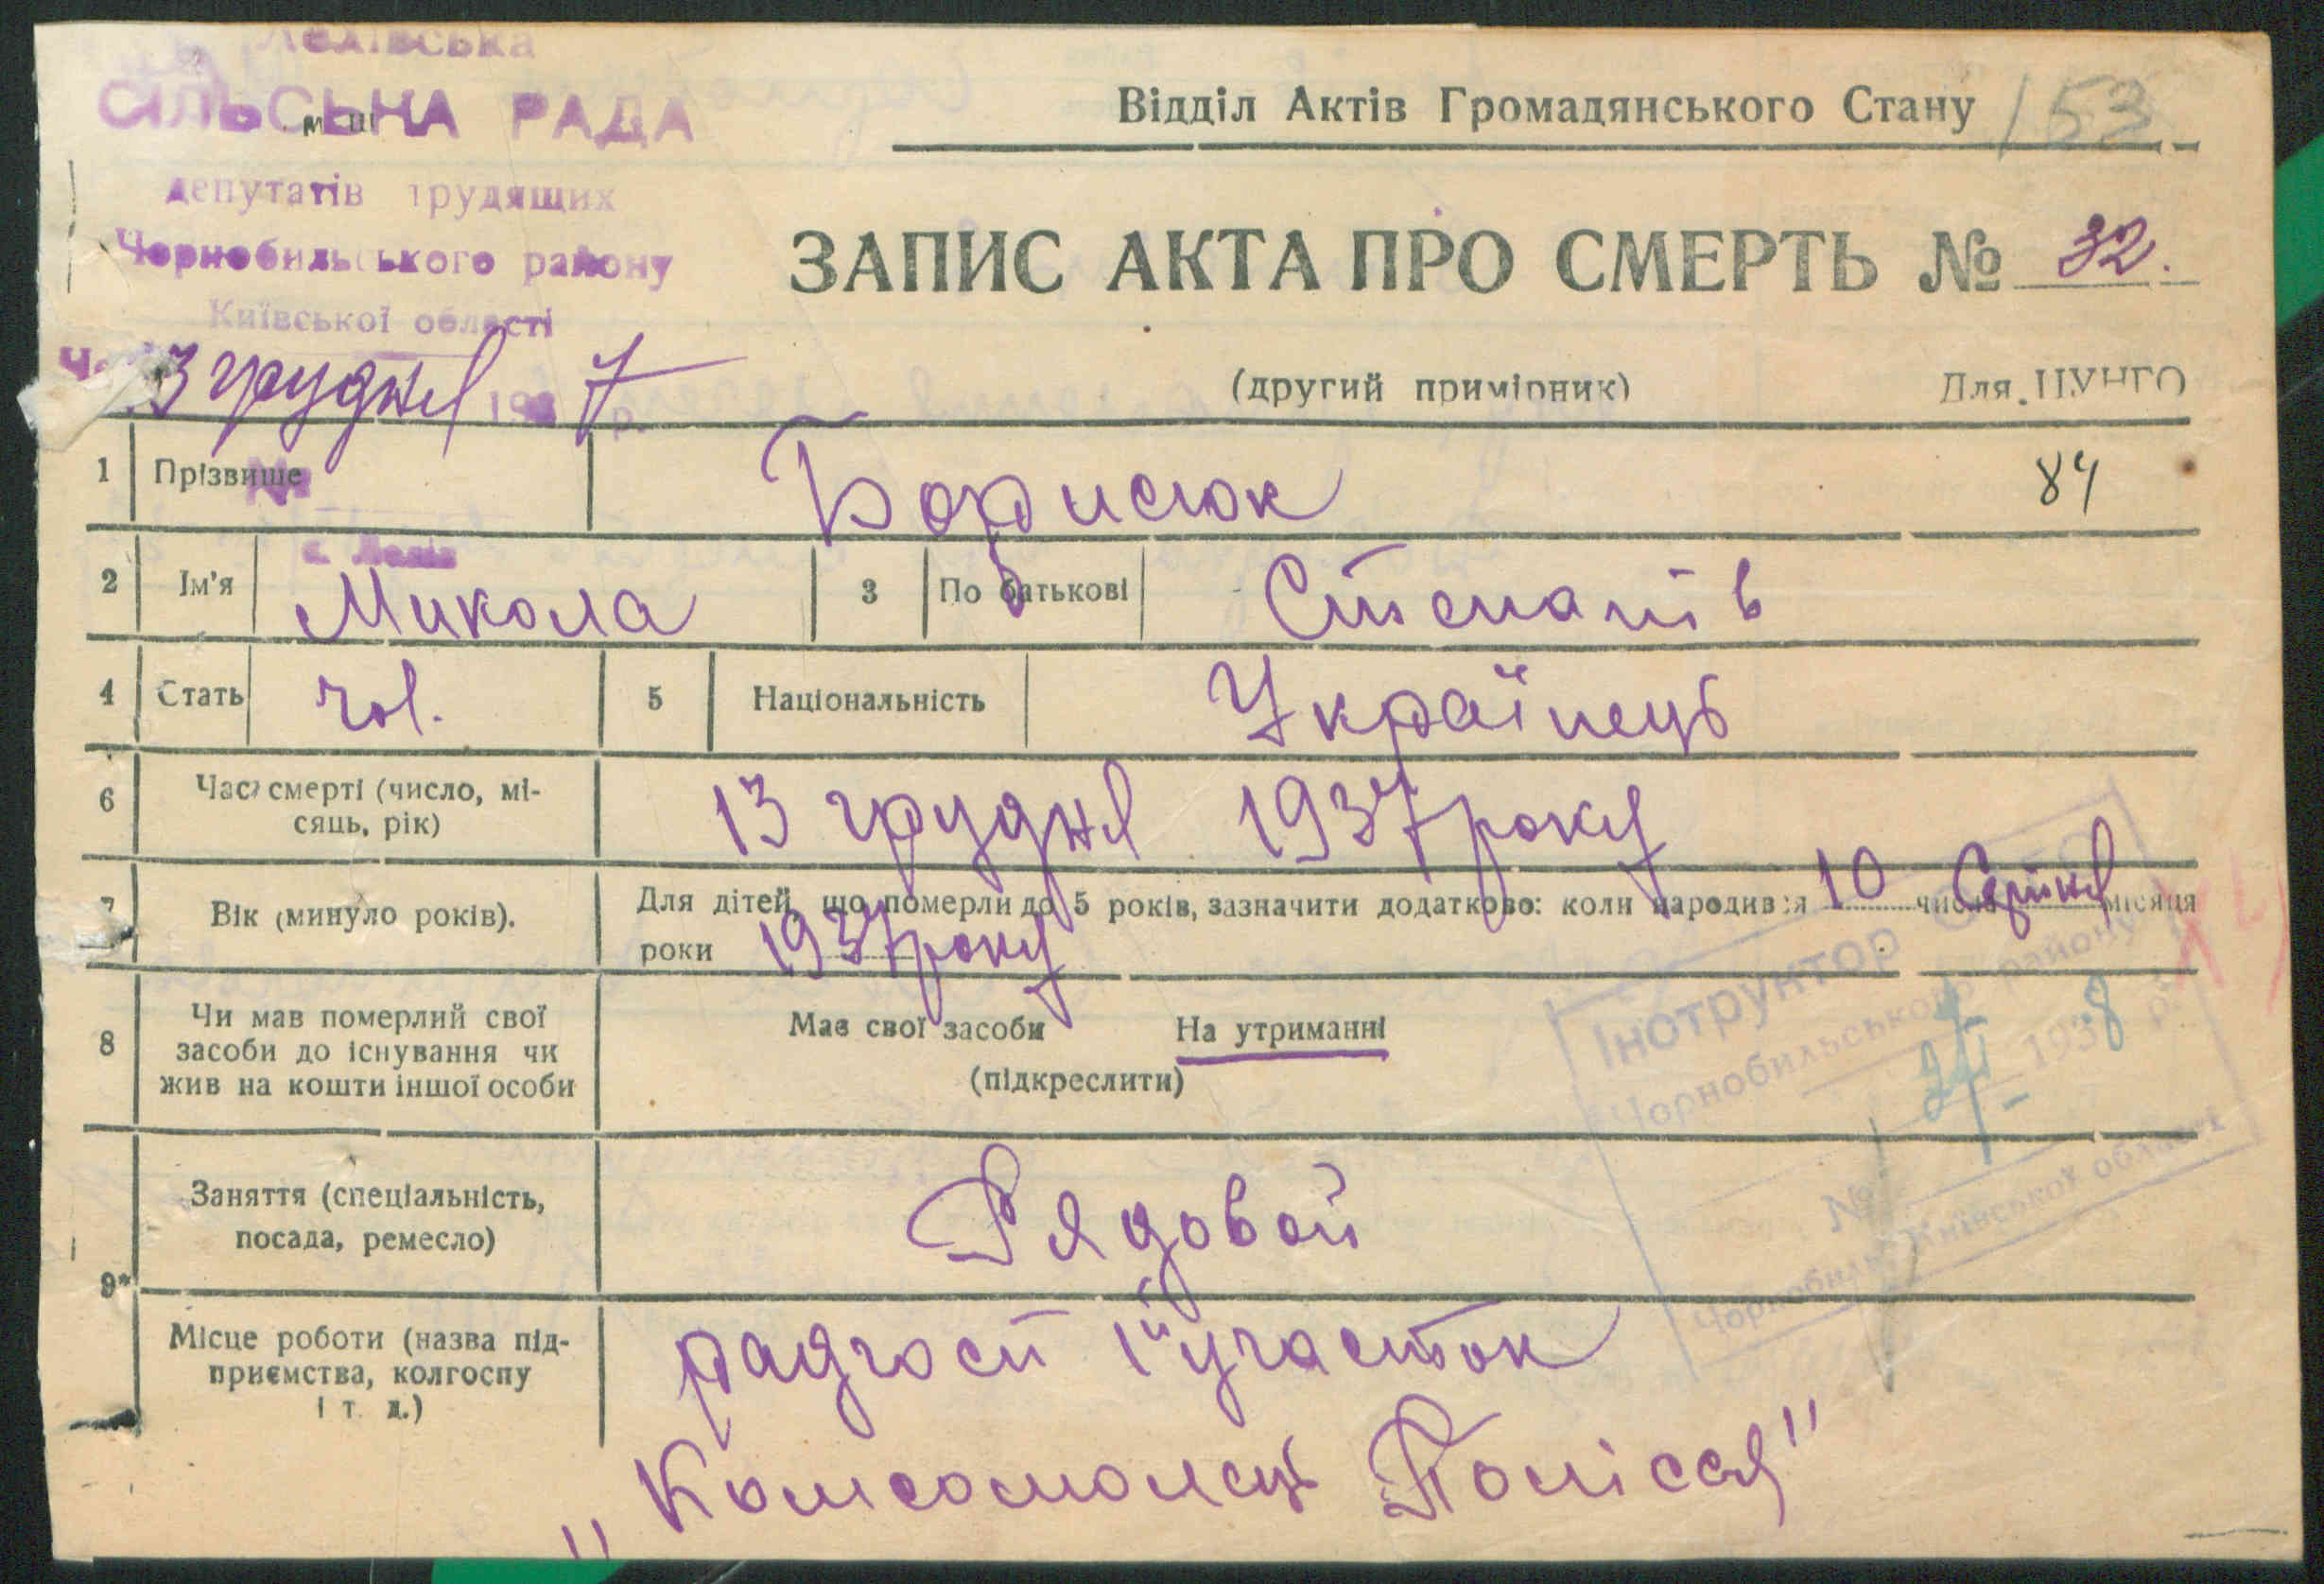 Лелівська
СІЛЬСЬКА РАДА
депутатів трудящих
Чорнобильського району
Київської області
13 грудня 1937 р.
№
с. Лелів
Відділ Актів Громадянського Стану
153
ЗАПИС АКТА ПРО СМЕРТЬ № 32.
(другий примірник) Для ЦУНГО
1 Прізвище Борисюк 84
2 Ім'я Микола 3 По батькові Степанів
4 Стать чол. 5 Національність Українець
6 Час смерті (число, мі-
сяць, рік) 13 грудня 1937 року
7 Вік (минуло років). Для дітей, що померли до 5 років, зазначити додатково: коли народився 10 числа місяця
роки 1937 року
8 Чи мав померлий свої
засоби до існування чи
жив на кошти іншої особи
Має свої засоби На утриманні
(підкреслити)
Інструктор
Чорнобильського району
1938 р.
№
Чорнобиль, Київської області
9* Заняття (спеціальність,
посада, ремесло) Рядовой
Місце роботи (назва під-
приємства, колгоспу
і т. д.)
радгосп 1й участок
"Комсомолець Полісся"